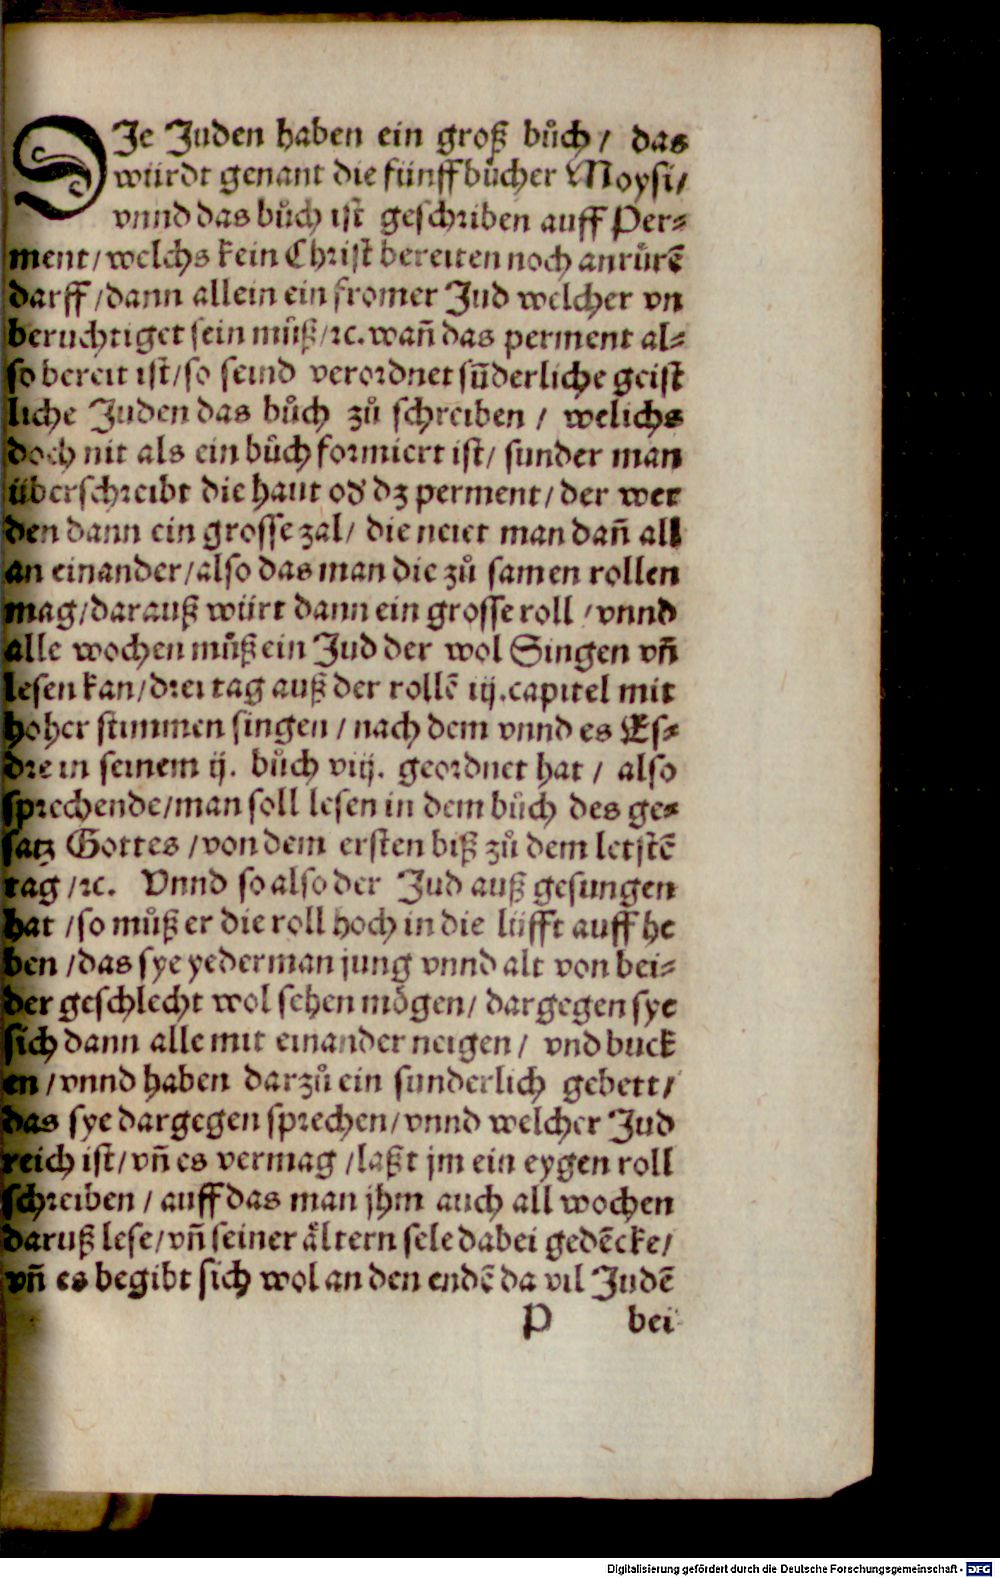 DJe Juden haben ein groß bůch / das
würdt genant die fünff bücher Moysi/
vnnd das bůch ist geschriben auff Per⸗
ment/welchs kein Christ bereiten noch anrůrē
darff /dann allein ein fromer Jud welcher vn
beruchtiget sein můß/ꝛc. wañ das perment al⸗
so bereit ist/so seind verordnet sūderliche geist
liche Juden das bůch zů schreiben / welichs
doch nit als ein bůch formiert ist/ sunder man
überschreibt die haut oď dz perment/ der wer
den dann ein grosse zal/ die neiet man dañ all
an einander/also das man die zů samen rollen
mag/darauß würt dann ein grosse roll /vnnd
alle wochen můß ein Jud der wol Singen vñ
lesen kan/drei tag auß der rollē iij.capitel mit
hoher stimmen singen / nach dem vnnd es Es⸗
dre in seinem ij. bůch viij. geordnet hat / also
sprechende/man soll lesen in dem bůch des ge⸗
satz Gottes /von dem ersten biß zů dem letstē
tag /ꝛc. Vnnd so also der Jud auß gesungen
hat /so můß er die roll hoch in die lüfft auff he
ben /das sye yederman jung vnnd alt von bei⸗
der geschlecht wol sehen mögen/ dargegen sye
sich dann alle mit einander neigen / vnd buck
en /vnnd haben darzů ein sunderlich gebett/
das sye dargegen sprechen/vnnd welcher Jud
reich ist/vñ es vermag /laßt jm ein eygen roll
schreiben / auff das man jhm auch all wochen
daruß lese/vñ seiner ältern sele dabei gedēcke/
vñ es begibt sich wol an den endē da vil Judē
P bei
Digitalisierung gefördert durch die Deutsche Forschungsgemeinschaft - DFG